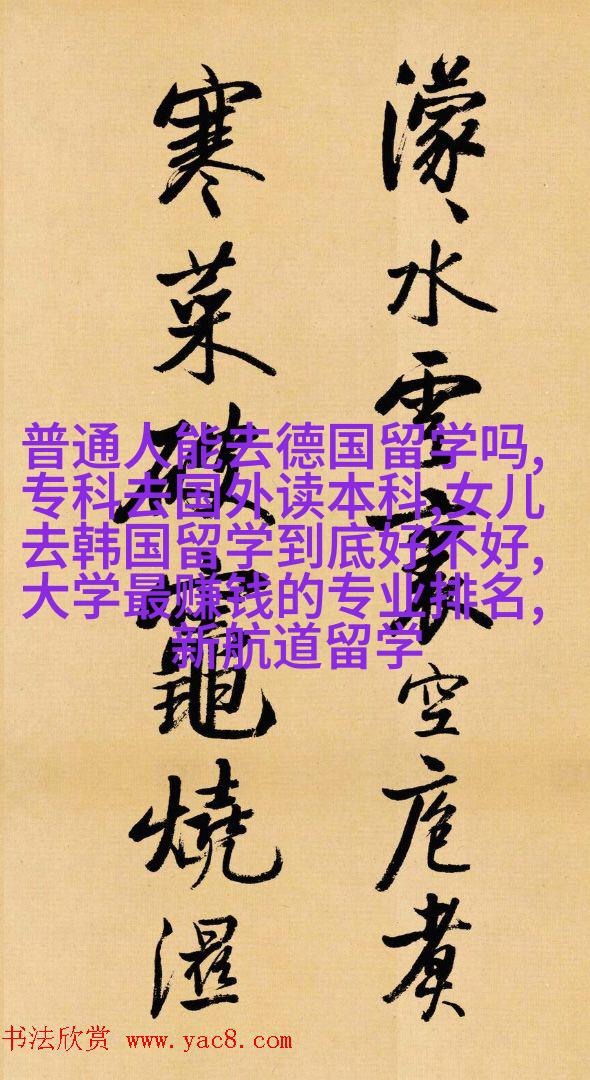 濛〻水雲裏空庖煮
寒菜破竈燒濕
普通人能去德国留学吗,
专科去国外读本科,女儿
去韩国留学到底好不好,
大学最赚钱的专业排名,
新航道留学
书法欣赏 www.yac8.com